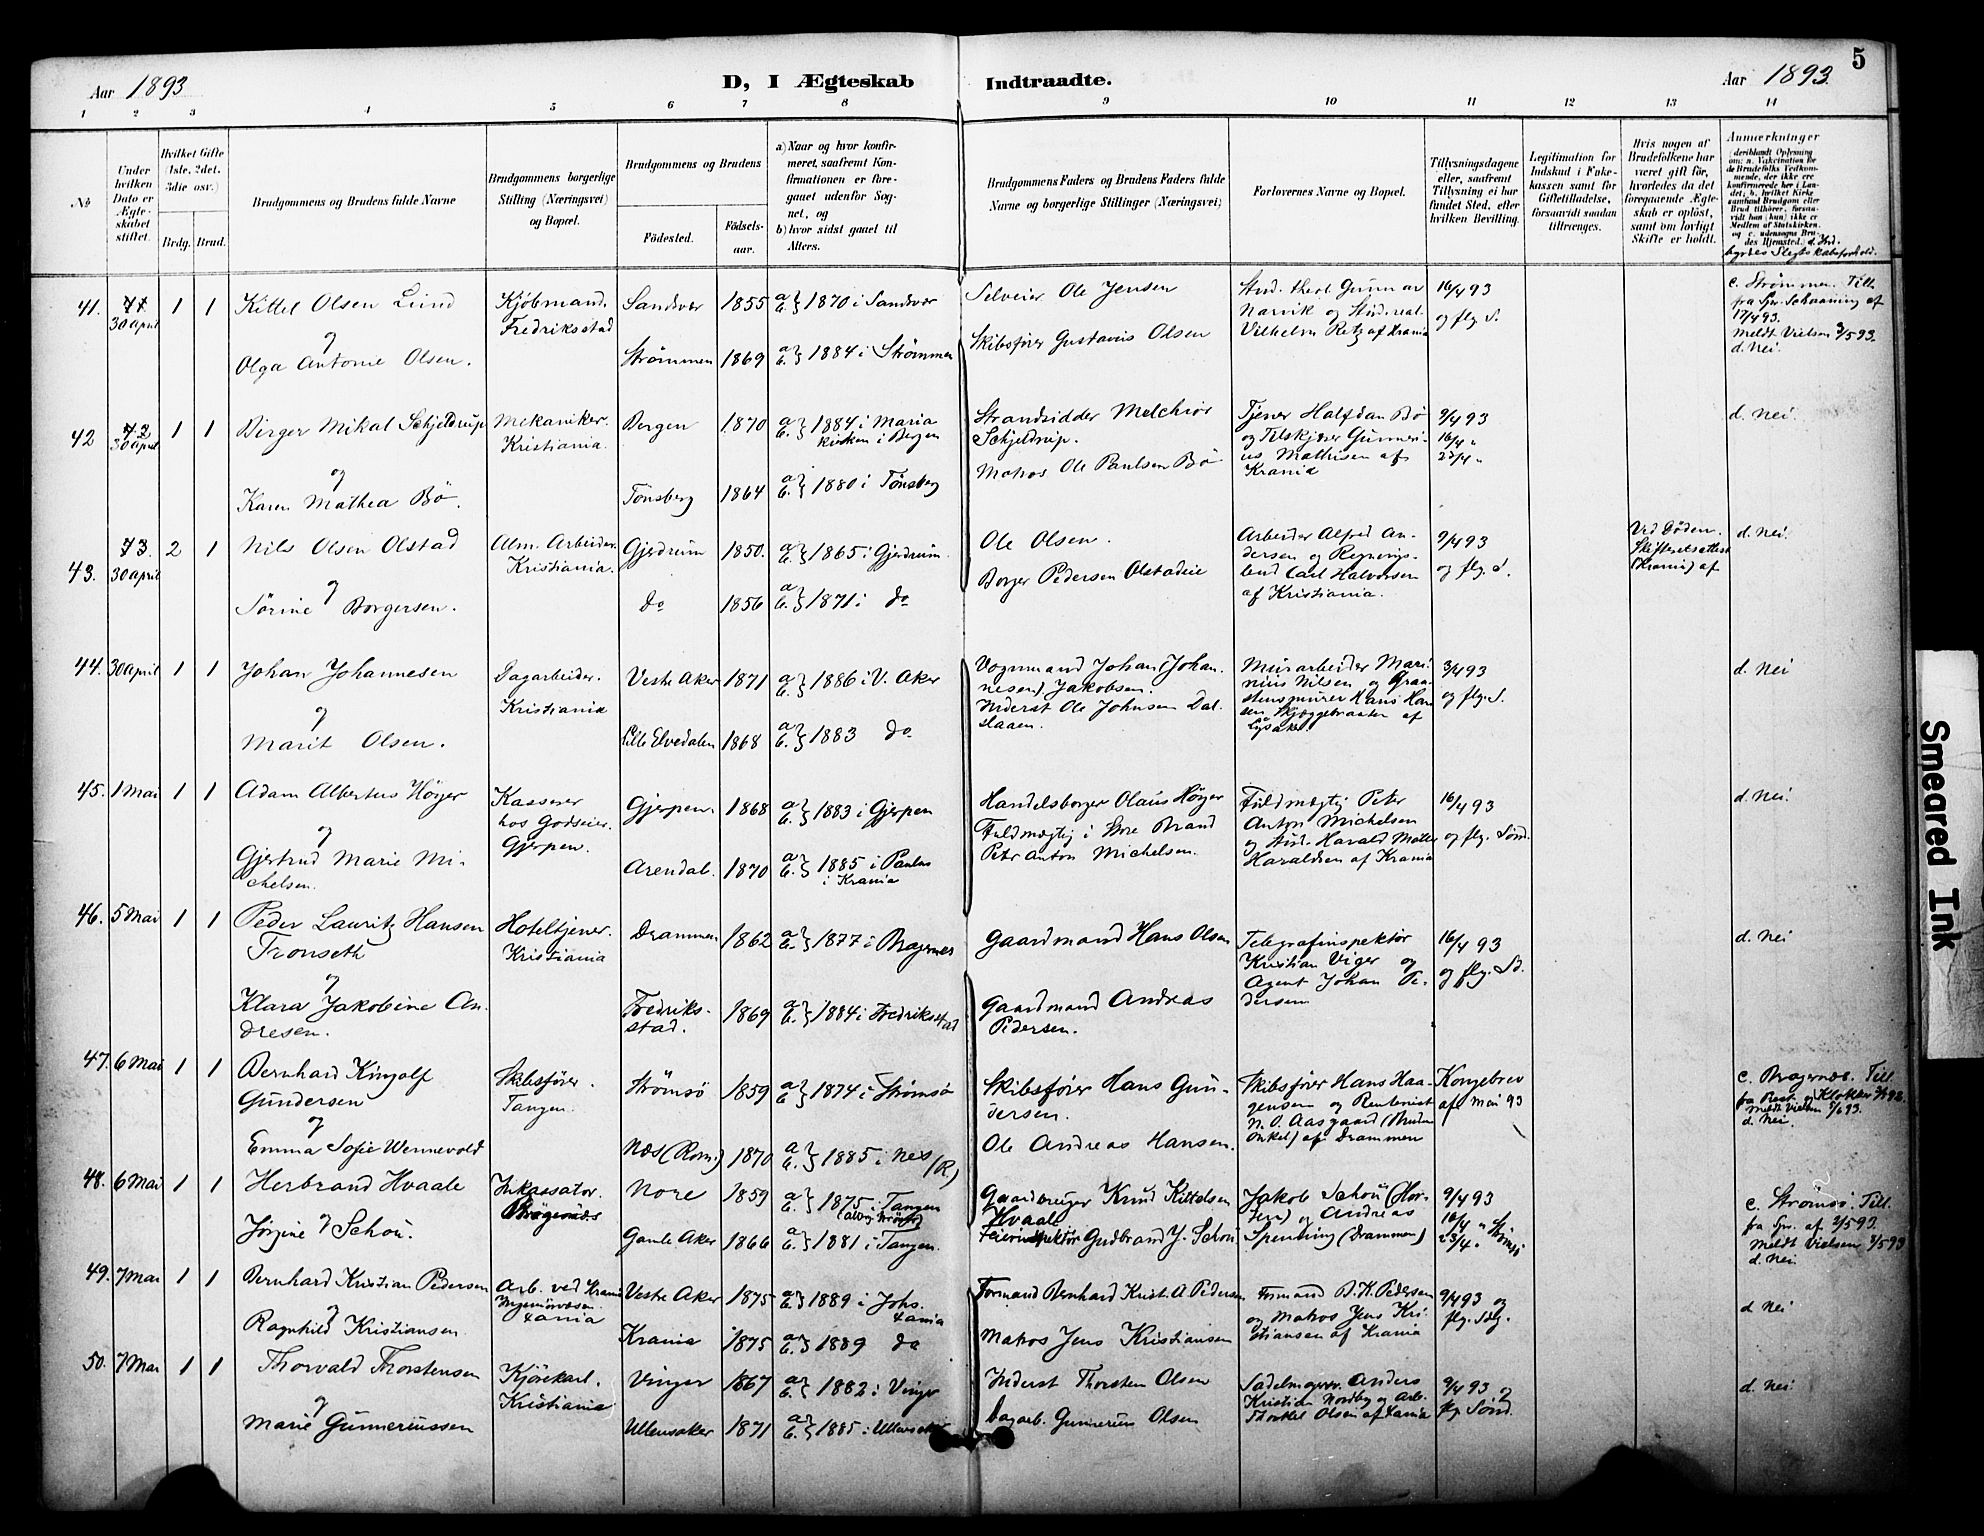 5
Aar 1893
D, I Ægteskab Indtraadte.
Aar 1893.
1 2 3 4 5 6 7 8 9 10 11 12 13 14
No
Under hvilken Dato er Ægteskabet stiftet.
Hvilket Gifte (1ste, 2det, 3die osv.)
Brdg. Brud.
Brudgommens og Brudens fulde Navne
Brudgommens borgerlige Stilling (Næringsvei) og Bopæl.
Brudgommens og Brudens
Fødested.
Fødsels-aar.
a) Naar og hvor konfir-
meret, saafremt Kon-
firmationen er fore-
gaaet udenfor Sog-
net, og
b) hvor sidst gaaet til
Alters.
Brudgommens Faders og Brudens Faders fulde
Navne og borgerlige Stillinger (Næringsvei)
Forlovernes Navne og Bopæl.
Tillysningsdagene
eller, saafremt
Tillysning ei har
fundet Sted, efter
hvilken Bevilling.
Legitimation for
Indskud i Enke-
kassen samt for
Giftetilladelse,
forsaavidt saadan
tiltrænges.
Hvis nogen af
Brudefolkene har
været gift før,
hvorledes da det
foregaaende Ægte-
skab er opløst,
samt om lovligt
Skifte er holdt.
Anmærkninger
(deriblandt Oplysning
om: a. Vakcination for
de Brudefolks Vedkom-
mende, der ikke ere
konfirmerede her i Lan-
det, b. hvilket Kirke-
samfund Brudgom eller
Brud tilhører, forsaa-
vidt han (hun) ikke er
Medlem af Statskirken,
og c. udensogns Bru-
des Hjemsted.) d. Ind-
byrdes Slegtskabsforhold.
41. 30 april 1 1 Kittel Olsen Lund
Kjöbmand.
Fredriksstad
Sandver 1855 a b } 1870 i Sandver
Selveier Ole Jensen
Stud. theol Gunnar
Narvik og Stud. real.
Vilhelm Retz af Krania
16/4 93
og flg. S.
c. Strømmen. Till.
fra Spr. Schaaning af
17/4 93.
Meldt Vielsen 3/5 93.
d. Nei.
og
Olga Antonie Olsen.
Strømmen 1869 a b } 1884 i Strømmen
Skibsfører Gustavus Olsen
42 30 april 1 1 Birger Mikal Schjeldrup
Mekaniker.
Kristiania.
Bergen 1870 a b } 1884 i Maria
kirken i Bergen
Strandsidder Melchior
Schjeldrup.
Tjener Halfdan Bö
og Tilskjærer Gunneri-
us Mathisen af
Krania
9/4 93
16/4 "
23/4 "
d. Nei.
og
Karen Mathea Bö.
Tönsberg 1864 a b } 1880 i Tönsberg
Matros Ole Paulsen Bö
43. 30 april 2 1 Nils Olsen Olstad
Alm. Arbeider.
Kristiania.
Gjerdrum 1850. a b } 1865 i Gjerdrum.
Ole Olsen.
Arbeider Alfred An-
dersen og Regnings-
bud Carl Halvorsen
af Kristiania.
9/4 93
og flg. S.
Ved Döden.
Skifteretsattest
(Krania) af
d. Nei.
og
Sörine Borgersen.
do 1856 a b } 1871 i do
Borger Pedersen Olstadeie
44. 30 april 1 1 Johan Johannesen
Dagarbeider.
Kristiania
Vestre Aker 1871 a b } 1886 i V. Aker
Vognmand Johan (Johan-
nesen) Jakobsen.
Murarbeider Mari-
nius Nilsen og Graa-
stensmurer Hans Han-
sen Skjæggebraaten af
Lysaker.
3/4 93
og flg. S.
d. Nei
og
Marit Olsen.
Lille Elvedalen 1868 a b } 1883 do
Inderst Ole Johnsen Dal-
slaaen.
45. 1 Mai 1 1 Adam Albertus Höyer
Kasserer
hos Godseier.
Gjerpen.
Gjerpen. 1868 a b } 1883 i Gjerpen
Handelsborger Olaus Höyer
Fuldmægtig Peter
Anton Michelsen
og Stud. Harald
Haraldsen af Krania
16/4 93
og flg. Sönd.
d. Nei.
og
Gjertrud Marie Mi-
chelsen.
Arendal. 1870 a b } 1885 i Paulus
i Krania
Fuldmægtig i Store Brand
Peter Anton Michelsen.
46. 5 Mai 1 1 Peder Lauritz Hansen
Tronseth
Hoteltjener.
Kristiania
Drammen 1862 a b } 1877 i Bragernes
Gaardmand Hans Olsen
Telegrafinspektör
Kristian Viger og
Agent Johan Pe-
dersen
16/4 93
og flg. Sö.
d. Nei
og
Klara Jakobine An-
dresen.
Fredriks-
stad. 1869 a b } 1884 i Fredriksstad
Gaardmand Andreas
Pedersen.
47. 6 Mai 1 1 Bernhard Ringolf
Gundersen
Skibsfører.
Tangen.
Strömsö 1859 a b } 1874 i Strömsö
Skibsfører Hans Gun-
dersen.
Skibsfører Hans Haa-
gensen og Rentenist
N. O. Aasgaard (Brudens
Onkel) af Drammen
Kongebrev
af Mai 93
c. Bragernæs. Till.
Meldt Vielsen 5/6 93.
d. Nei.
og
Emma Sofie Wennevold
Næs (Rom.) 1870 a b } 1885 i Nes (R.)
Ole Andreas Hansen.
48. 6 Mai 1 1 Herbrand Hvaale
Inkassator.
Bragernæs
Nore 1859 a b } 1875 i Tangen
Gaardbruger Knud Kittelsen
Hvaale
Jakob Schou (Hor-
ten) og Andreas
Spenning (Drammen)
9/4 93
16/4 "
23/4 "
c. Strömsö. Till.
fra Spr. af 2/5 93.
Meldt Vielsen 8/5 93
d. Nei
Jörgine og Schou.
Gamle Aker 1866 a b } 1881 i Tangen.
Feierinspektör Gudbrand J. Schou
49. 7 Mai 1 1 Bernhard Kristian Pedersen
Arb. ved Krania
Ingeniörvæsen.
Xania
Vestre Aker 1875 a b } 1889 i Johs.
Xania
Formand Bernhard Krist. A Pedersen
Formand B. K. Pedersen
og Matros Jens Kri-
stiansen af Krania
9/4 93 og
flg. Sdg.
d. Nei
og
Ragnhild Kristiansen
Krania 1875 a b } 1889 do
Matros Jens Kristiansen
50. 7 Mai 1 1 Thorvald Thorstensen
Kjörekarl.
Kristiania
Vinger 1867 a b } 1882 i Vinger
Inderst Thorsten Olsen
Sadelmager Anders
Kristian Nordby og Arb.
Thorkel Olsen af Xania
9/4 93 og
flg. Sönd.
d. Nei.
og
Marie Gunneriussen
Ullensaker 1871 a b } 1885 i Ullensaker
Dagarb. Gunnerius Olsen
Smeared Ink